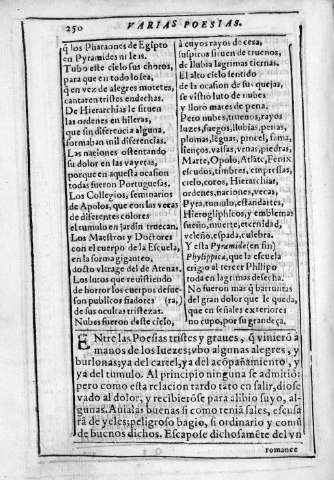 250
VARIAS POESIAS.
q̃ los Pharaones de Egipto
en Pyramides ni leis.
Tubo este cielo sus choros,
para que en todo lo sea,
q̃ en vez de alegres motetes,
cantaren tristes endechas.
De Hierarchias le siruen
las ordenes en hileras,
que sin diferencia alguna,
formaban mil diferencias.
Las naciones ostentando
su dolor en las vayetas,
porque en aquesta ocasion
todas fueron Portuguesas.
Los Collegios, seminarios
de Apolos, que con las vecas
de diferentes colores
el tumulo en jardin truecan.
Los Maestros y Doctores
con el cuerpo de la Escuela,
en la forma giganteo,
docto vltrage del de Atenas.
Los lutos que reuistiendo
de horror los cuerpos desue-
son publicos fiadores (ra,)
de sus ocultas tristezas.
Nubes fueron deste cielo,
à cuyos rayos de cera,
suspiros siruen de truenos,
de llubia lagrimas tiernas.
El alto cielo sentido
de la ocasion de sus quejas,
se vistiò luto de nubes
y llorò mares de pena.
Pero nubes, truenos, rayos
luzes, fuegos, llubias, penas,
plumas, leguas, pincel, fama,
lienços, valsas, venas, piedras,
Marte, Opolo, Atlãte, Fenix
escudos, timbres, empresas,
cielo, coros, Hierarchias,
ordenes, naciones, vecas,
Pyra, tumulo, estandartes,
Hieroglyphicos, y emblemas
sueño, muerte, eternidad,
veleño, espada, culebra.
Y esta Pyramide (en fin)
Phylippica, que la escuela
erigio al tercer Philipo
toda en lagrimas desecha.
No fueron mas q̃ barruntas
del gran dolor que le queda,
que en señales exteriores
no cupo, por su grandeça.
ENtre las Poesias tristes y graues, q̃ vinierõ a
manos de los Iuezes; vbo algunas alegres, y
burlonas; ya del cartel, ya del acõpañamiẽto, y
ya del tumulo. Al principio ninguna se admitiò:
pero como esta relacion tardo tãto en salir, diose
vado al dolor, y recibierõse para alibio suyo, al-
gunas. Auialas buenas si como tenia sales, escusa
rã de yeles; peligroso bagio, si ordinario y comũ
de buenos dichos. Escapose dichosamẽte del vn
romance